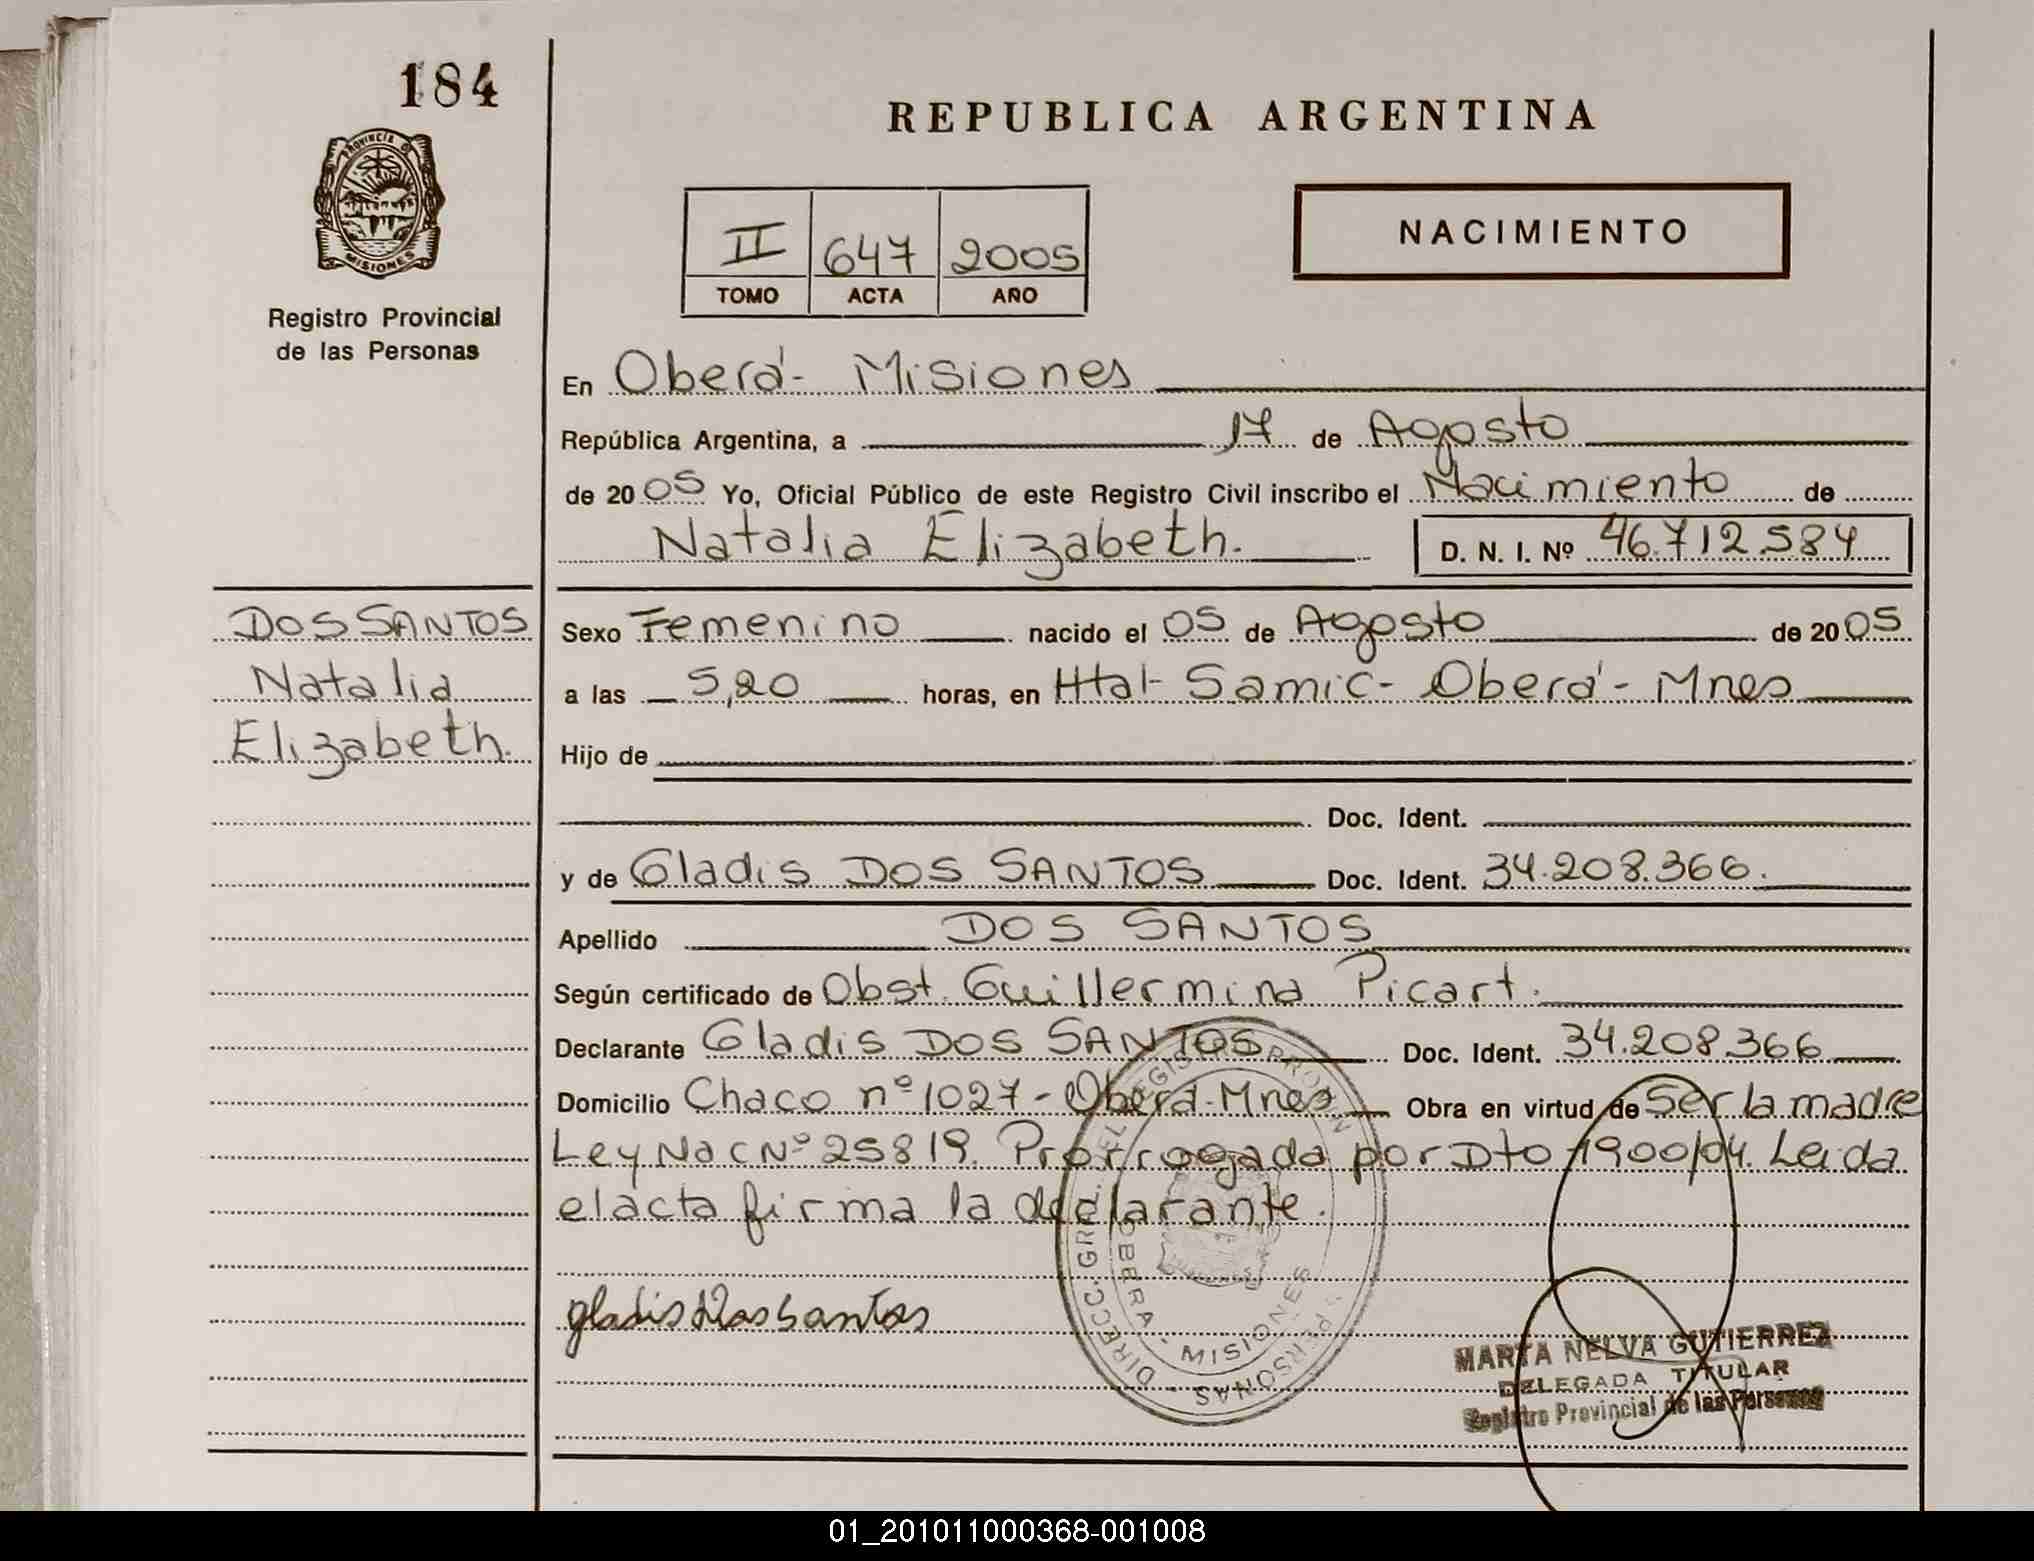 184
REPUBLICA ARGENTINA
PROVINCIA D
MISIONES
Registro Provincial
de las Personas
II 647 2005
TOMO ACTA AÑO
NACIMIENTO
En Oberá- Misiones
República Argentina, a 17 de Agosto
de 2005 Yo, Oficial Público de este Registro Civil inscribo el Nacimiento de
Natalia Elizabeth. D. N. I. Nº 46.712.584
DOS SANTOS
Natalia
Elizabeth.
Sexo Femenino nacido el 05 de Agosto de 2005
a las 5,20 horas, en Htal- Samic- Oberá- Mnes
Hijo de
Doc. Ident.
y de Gladis DOS SANTOS Doc. Ident. 34.208.366.
Apellido DOS SANTOS
Según certificado de Obst. Guillermina Picart.
Declarante Gladis DOS SANTOS Doc. Ident. 34.208.366
Domicilio Chaco nº 1027- Oberá-Mnes Obra en virtud de Ser la madre
Ley Nac Nº 25819. Prorrogada por Dto 1900/04. Leida
el acta firma la declarante.
gladis dos santos
DIRECC. GRAL. DEL REGISTRO PROVIN PERSONAS
OBERA - MISIONES
MARTA NELVA GUTIERREZ
DELEGADA TITULAR
Registro Provincial de las Personas
01_201011000368-001008